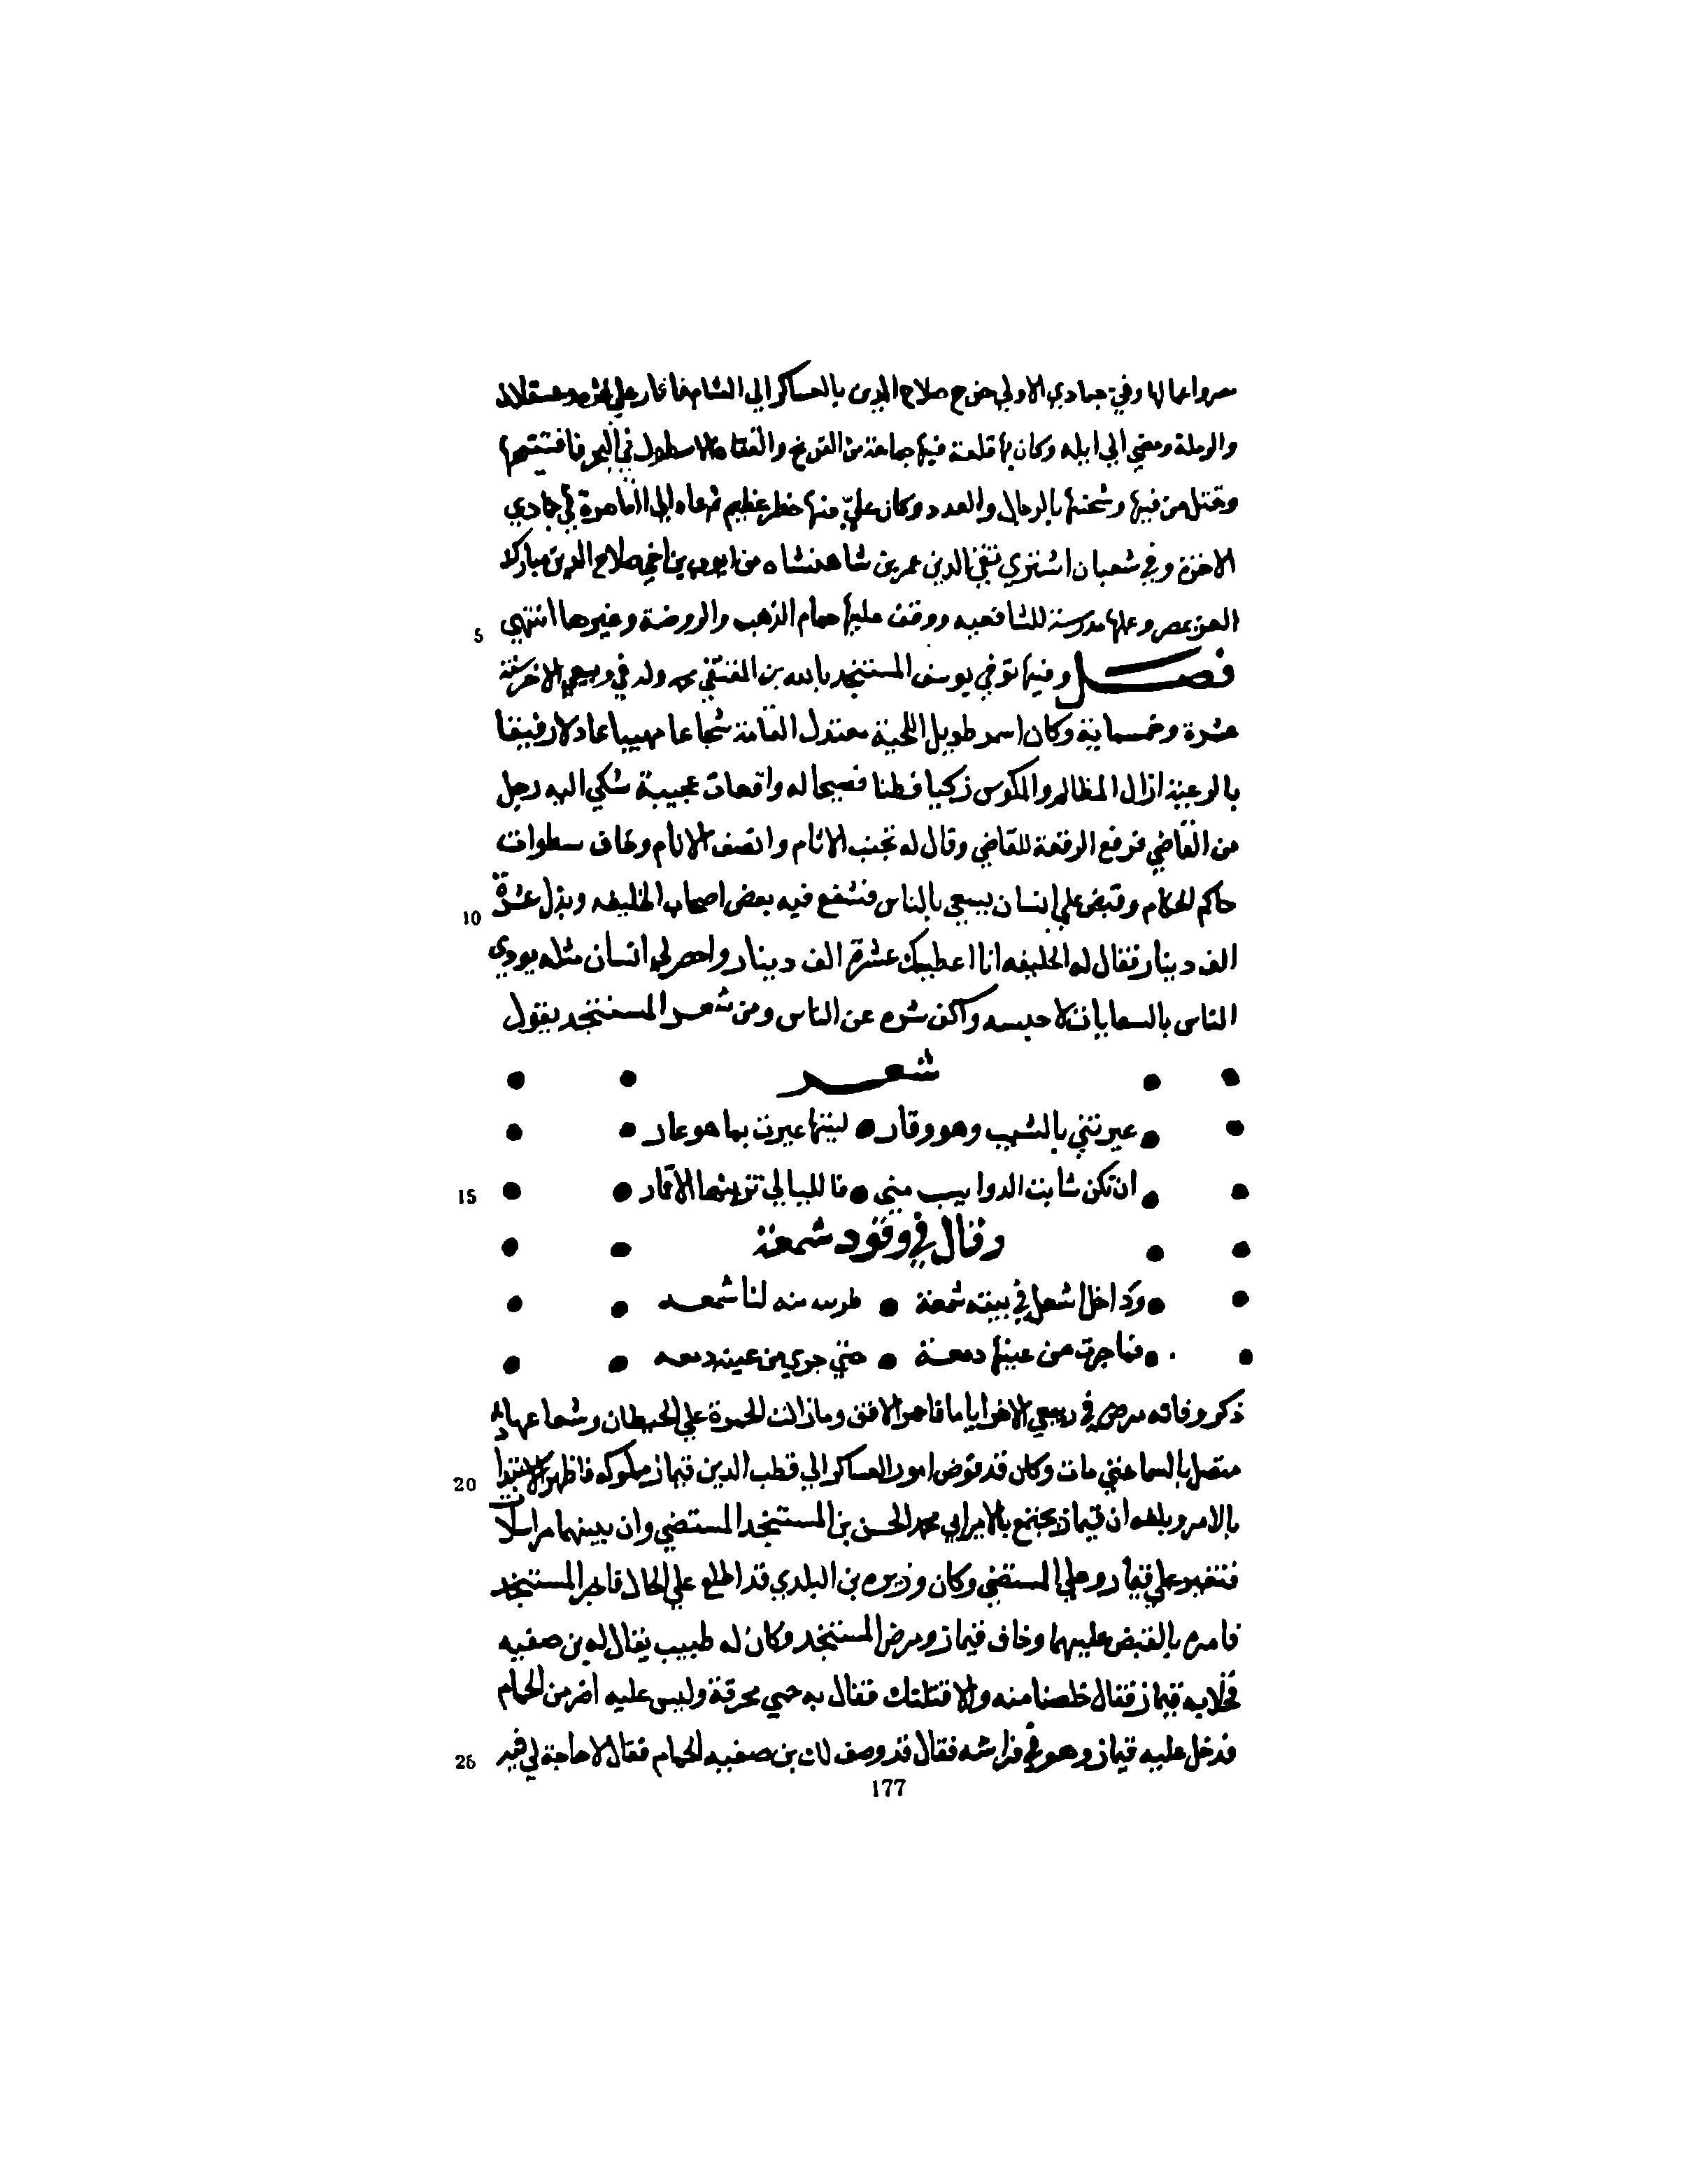 مصر واعمالها وفي جمادي الاولي خرج صلاح الدين بالعساكر الي الشام فاغار علي غزه وعسقلان
والرملة ومضي الي ايله وكان بها قلعة فيها جماعة من الفرنج والتقاه الاسطول في البحر فافتتحها
وقتل من فيها وشحنها بالرجال والعدد وكان علي منها خطر عظيم ثم عاد الي القاهرة في جمادي
الاخرة وفي شعبان اشتري تقي الدين عمر بن شاهنشاه من ايوب بن اخي صلاح الدين مبارك
العز بمصر وعملها مدرسة للشافعيه ووقف عليها حمام الذهب والروضة وغيرها انتهي
5
فصل وفيها توفي يوسف المستنجد بالله بن المقتفي ولد في ربيع الاخر سنة
عشرة وخمسماية وكان اسمر طويل اللحية معتدل القامة شجاعا مهيبا عادلا رفيقا
بالرعية ازال المظالم والمكوس زكيا فطنا فصيحا له واقعات عجيبة شكي اليه رجل
من القاضي فوقع الرقعة للقاضي وقال له تجنب الاثام وانصف الانام وخاف سطوات
حاكم الحكام وقبض علي انسان يسعي بالناس فشفع فيه بعض اصحاب الخليفه وبذل عشرة
10
الف دينار فقال له الخليفه انا اعطيك عشرة الف دينار واحصر لي انسان مثله يودي
الناس بالسعايات لاحبسه واكف شره عن الناس ومن شعر المستنجد يقول
شعر
عيرتني بالشيب وهو وقار • ليتها عيرت بما هو عار
ان تكن شابت الدوايب مني • فالليالي تزينها الاقمار
15
وقال في وقود شمعة
وداخل اشعل في بيته شمعة • منه لنا شمعه
فما جرت من عينها دمعة • حتي جري من عينه دمعه
ذكر وفاته مرض في ربيع الاخر اياما فاحمر الافق ومازالت الحمرة علي الحيطان وشعاعها
متصل بالسما حتي مات وكان قد فوض امور العساكر الي قطب الدين قيماز مملوكه فاظهر
20
بالامر وبلغه ان قيماز يجتمع بالامير ابي محمد الحسن بن المستنجد المستضي وان بينهما مراسلات
فتغير علي قيماز وعلي المستضي وكان وزيره بن البلدي قد اطلع علي الحال المستنجد
فامره بالقبض عليهما وخاف قيماز ومرض المستنجد وكان له طبيب يقال له بن صفيه
فخلا به قيماز فقال خلصنا منه والا قتلتك فقال به حمي محرقة وليس عليه اضر من الحمام
فدخل عليه قيماز وهو في فراشه فقال قد وصف لك بن صفيه الحمام فقال لا حاجة لي فيه
25
177